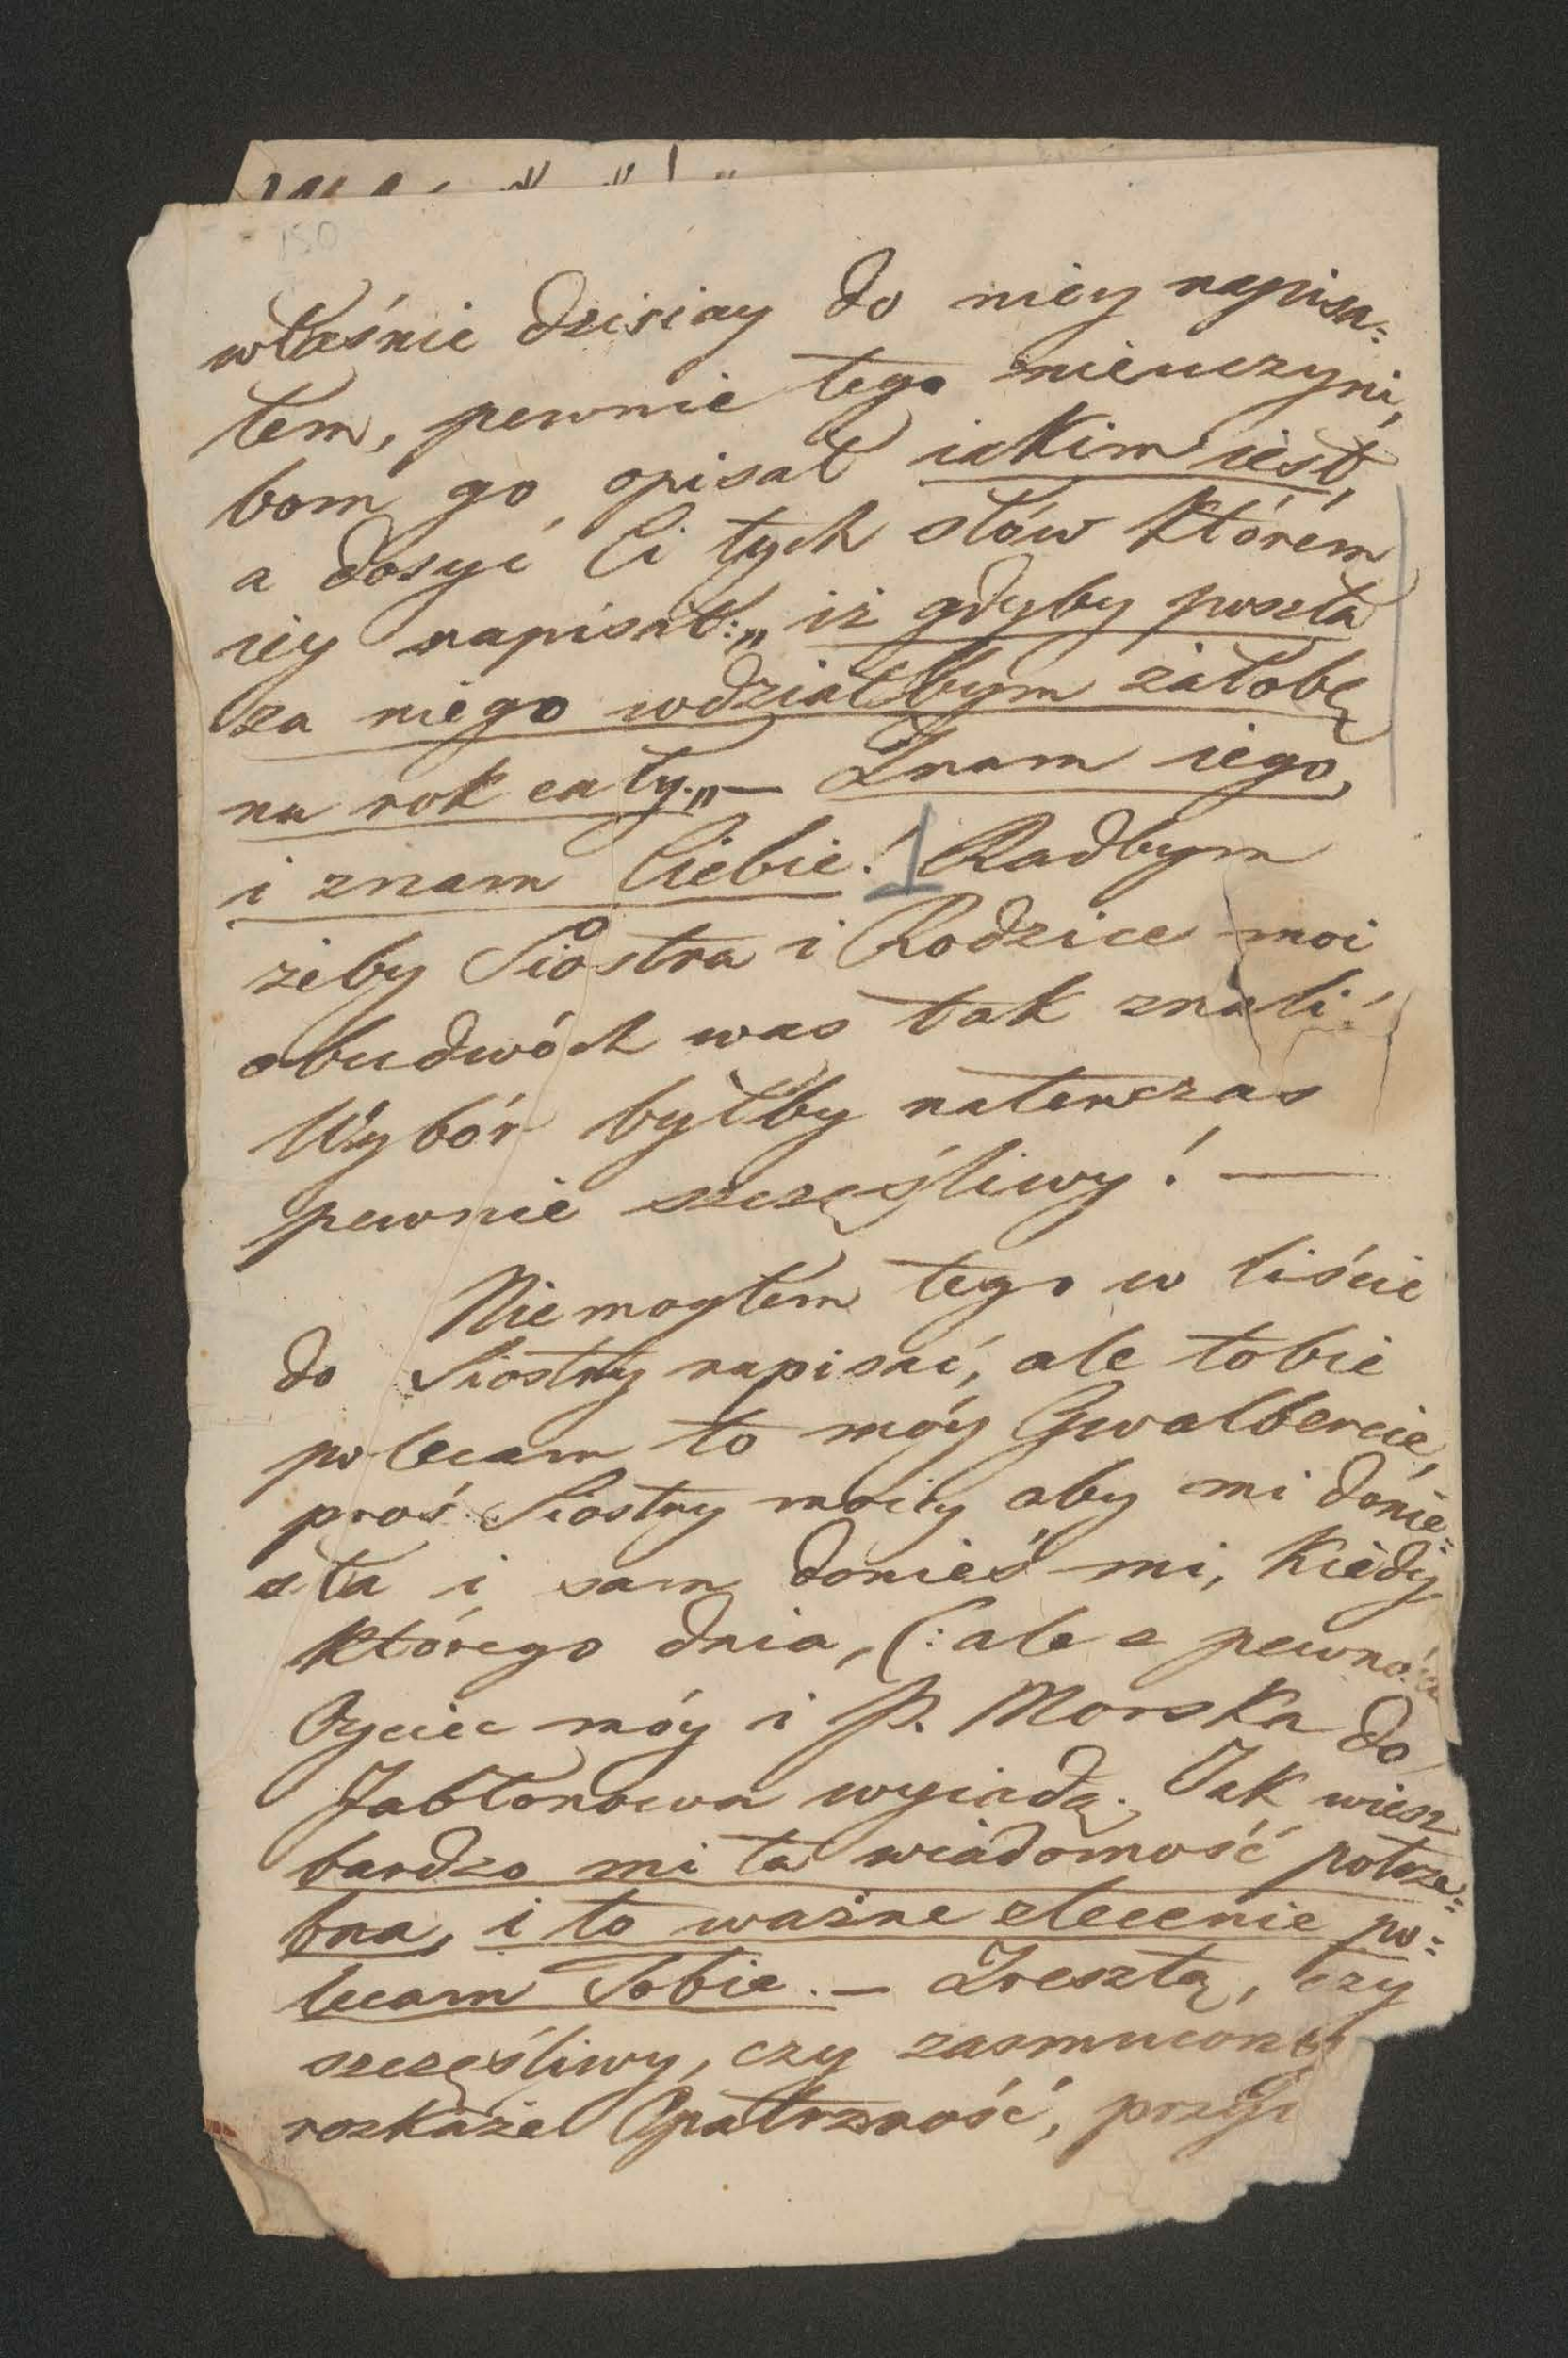 150
właśnie dzisiay do niey napisa=
łem, pewnie tego nieuczyni,
bom go opisał iakim iest,
a dosyć Ci tych słów którem
iey napisał: „iż gdyby poszła
za niego wdziałbym żałobę
na rok cały.„ — Znam iego,
i znam Ciebie! Radbym
żeby Siostra i Rodzice moi
obudwóch was tak znali!
Wybór byłby natenczas
pewnie szczęśliwy! —
Niemogłem tego w liście
do Siostry napisać, ale tobie
polecam to móy Gwalbercie,
proś Siostry moiey aby mi donie=
sła i sam donieś mi, kiedy
którego dnia, (: ale z pewno
Oyciec móy i P. Morska do
Jabłonowa wyiadą. Jak wiesz
bardzo mi ta wiadomość potrze=
bna, i to ważne zlecenie po=
lecam Tobie. — Zresztą, czy
szczęśliwy, czy zasmucony
rozkaże Opatrzność,